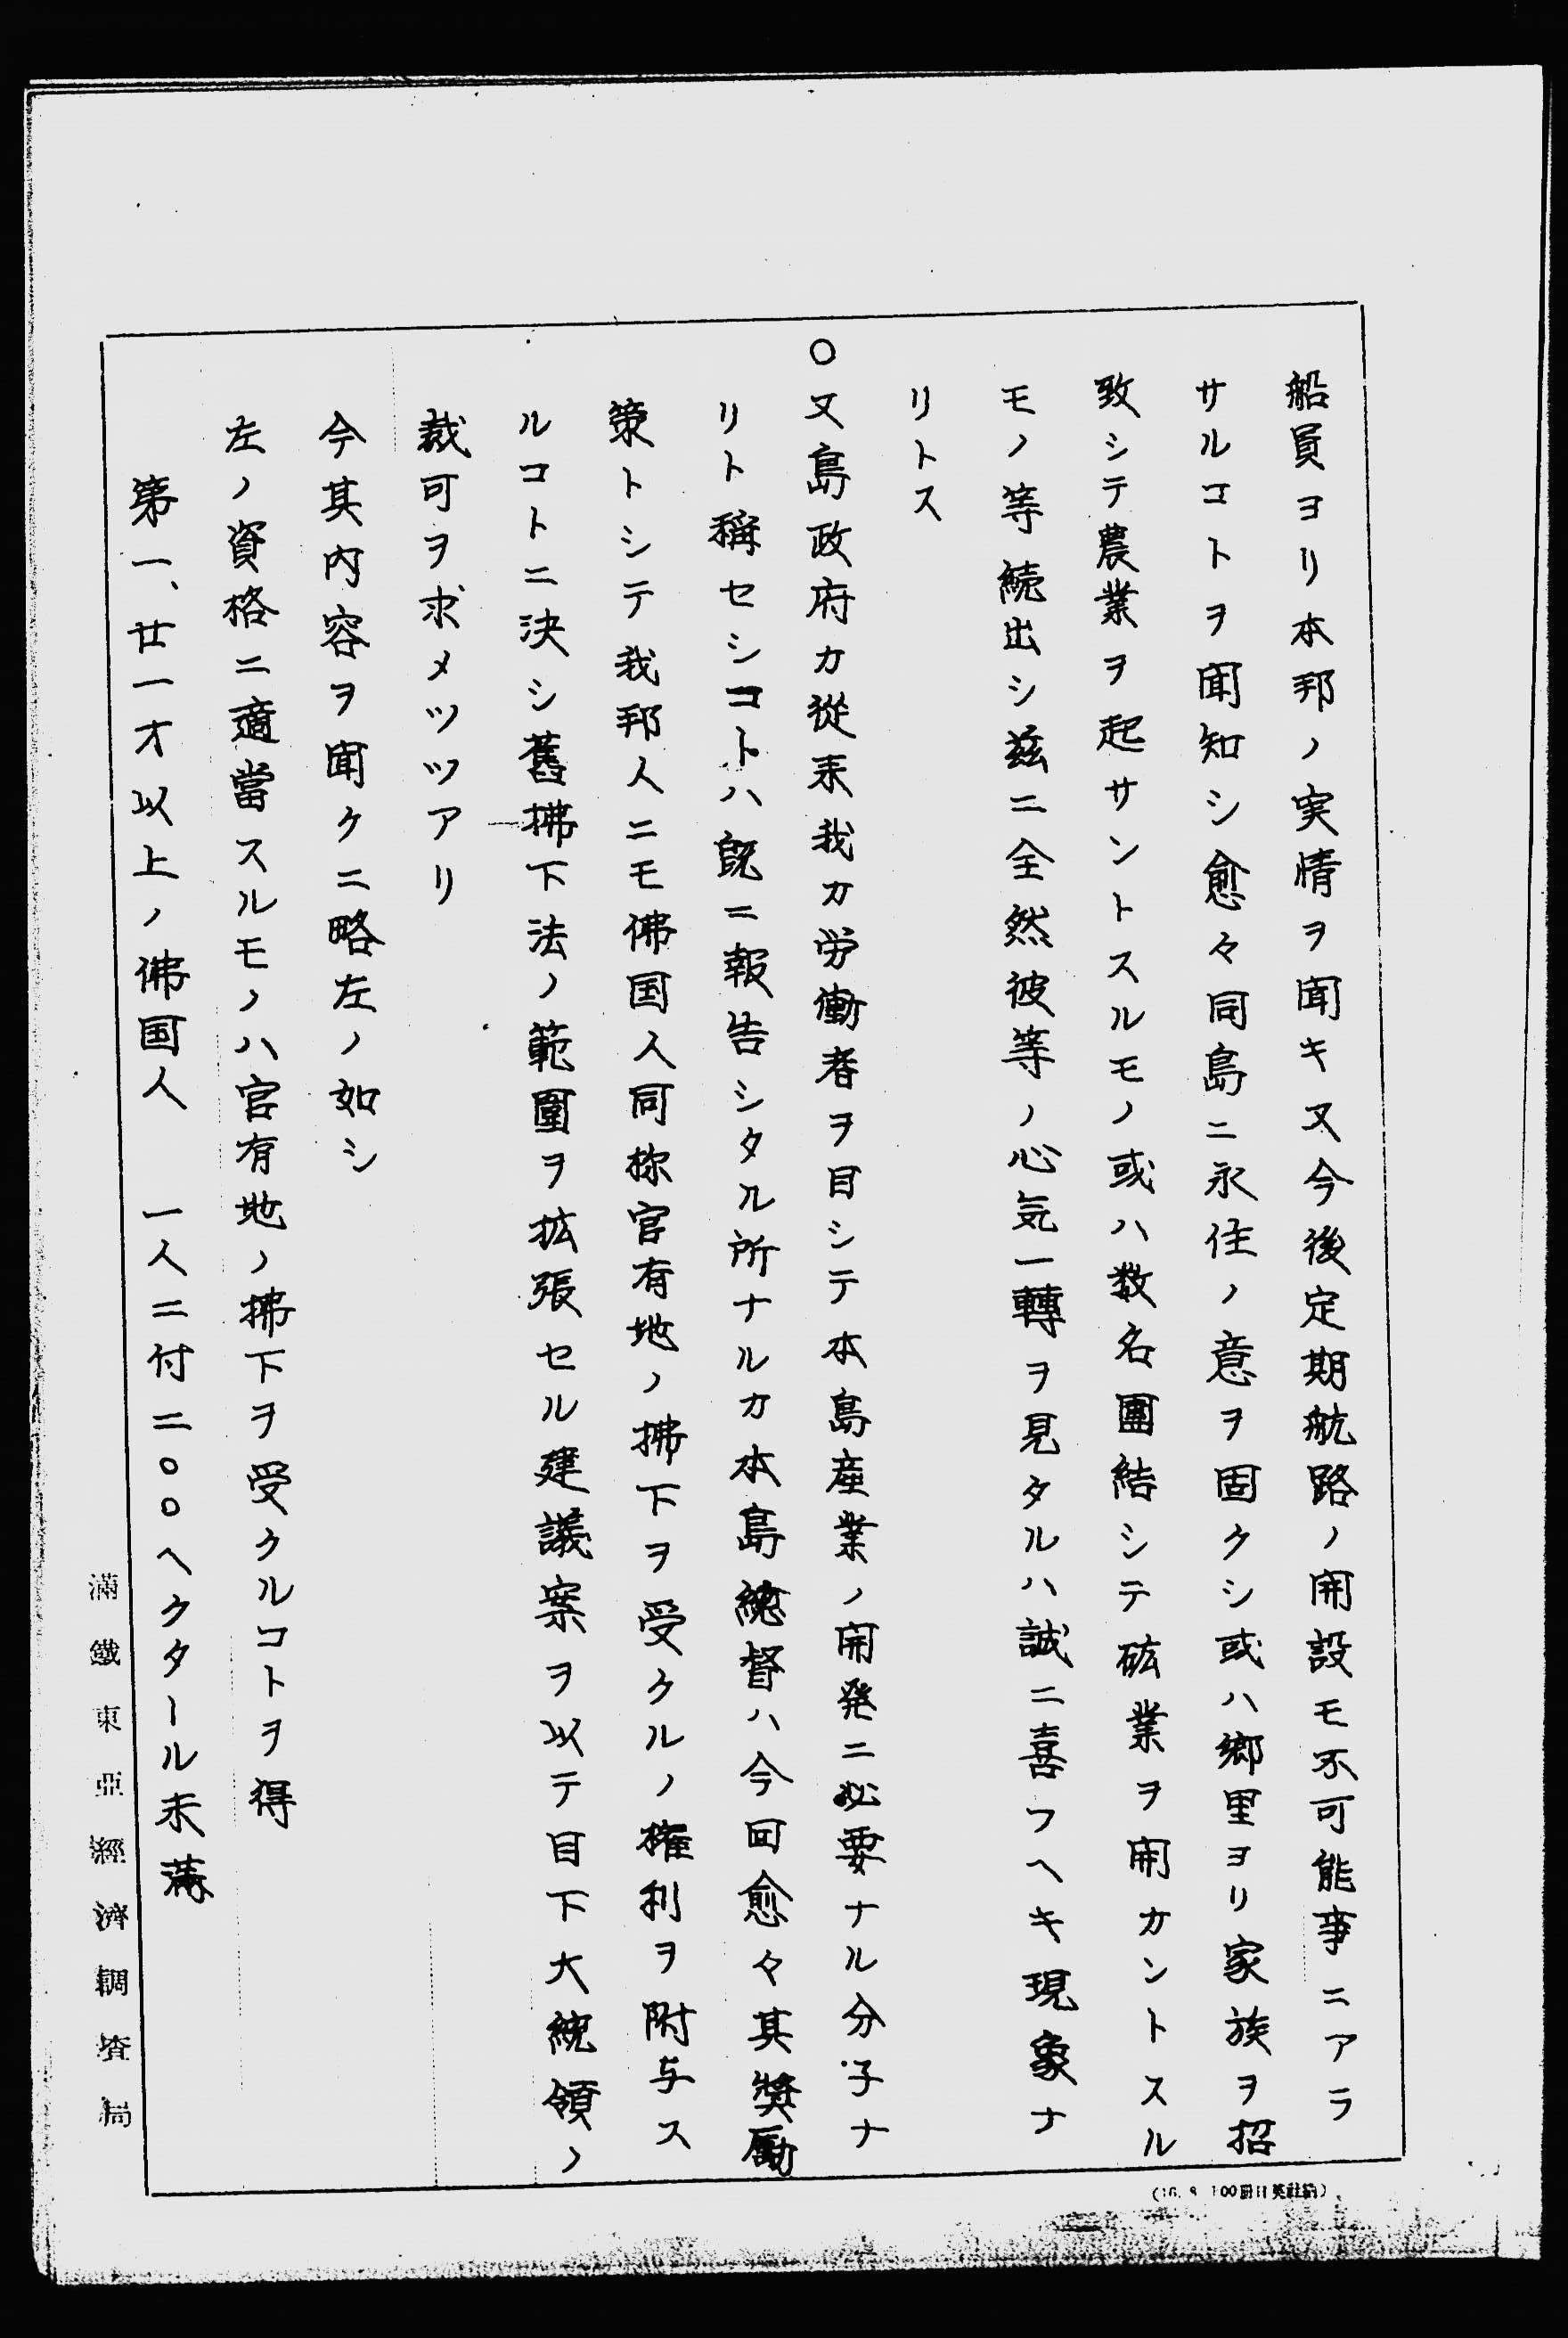 船員ヨリ本邦ノ実情ヲ聞キ又今後定期航路ノ開設モ不可能事ニアラ
サルコトヲ聞知シ愈々同島ニ永住ノ意ヲ固クシ或ハ郷里ヨリ家族ヲ招
致シテ農業ヲ起サントスルモノ或ハ数名團結シテ砿業ヲ開カントスル
モノ等続出シ茲ニ全然彼等ノ心気一轉ヲ見タルハ誠ニ喜フヘキ現象ナ
リトス
○又島政府カ從来我カ労働者ヲ目シテ本島産業ノ開発ニ必要ナル分子ナ
リト稱セシコトハ既ニ報告シタル所ナルカ本島總督ハ今回愈々其奨励
策トシテ我邦人ニモ佛国人同様官有地ノ拂下ヲ受クルノ権利ヲ附与ス
ルコトニ決シ舊拂下法ノ範圍ヲ拡張セル建議案ヲ以テ目下大統領ノ
裁可ヲ求メツツアリ
今其内容ヲ聞クニ略左ノ如シ
左ノ資格ニ適當スルモノハ官有地ノ拂下ヲ受クルコトヲ得
第一、廿一才以上ノ佛国人 一人ニ付二〇〇ヘクタール未満
滿鐵東亞經濟調査局